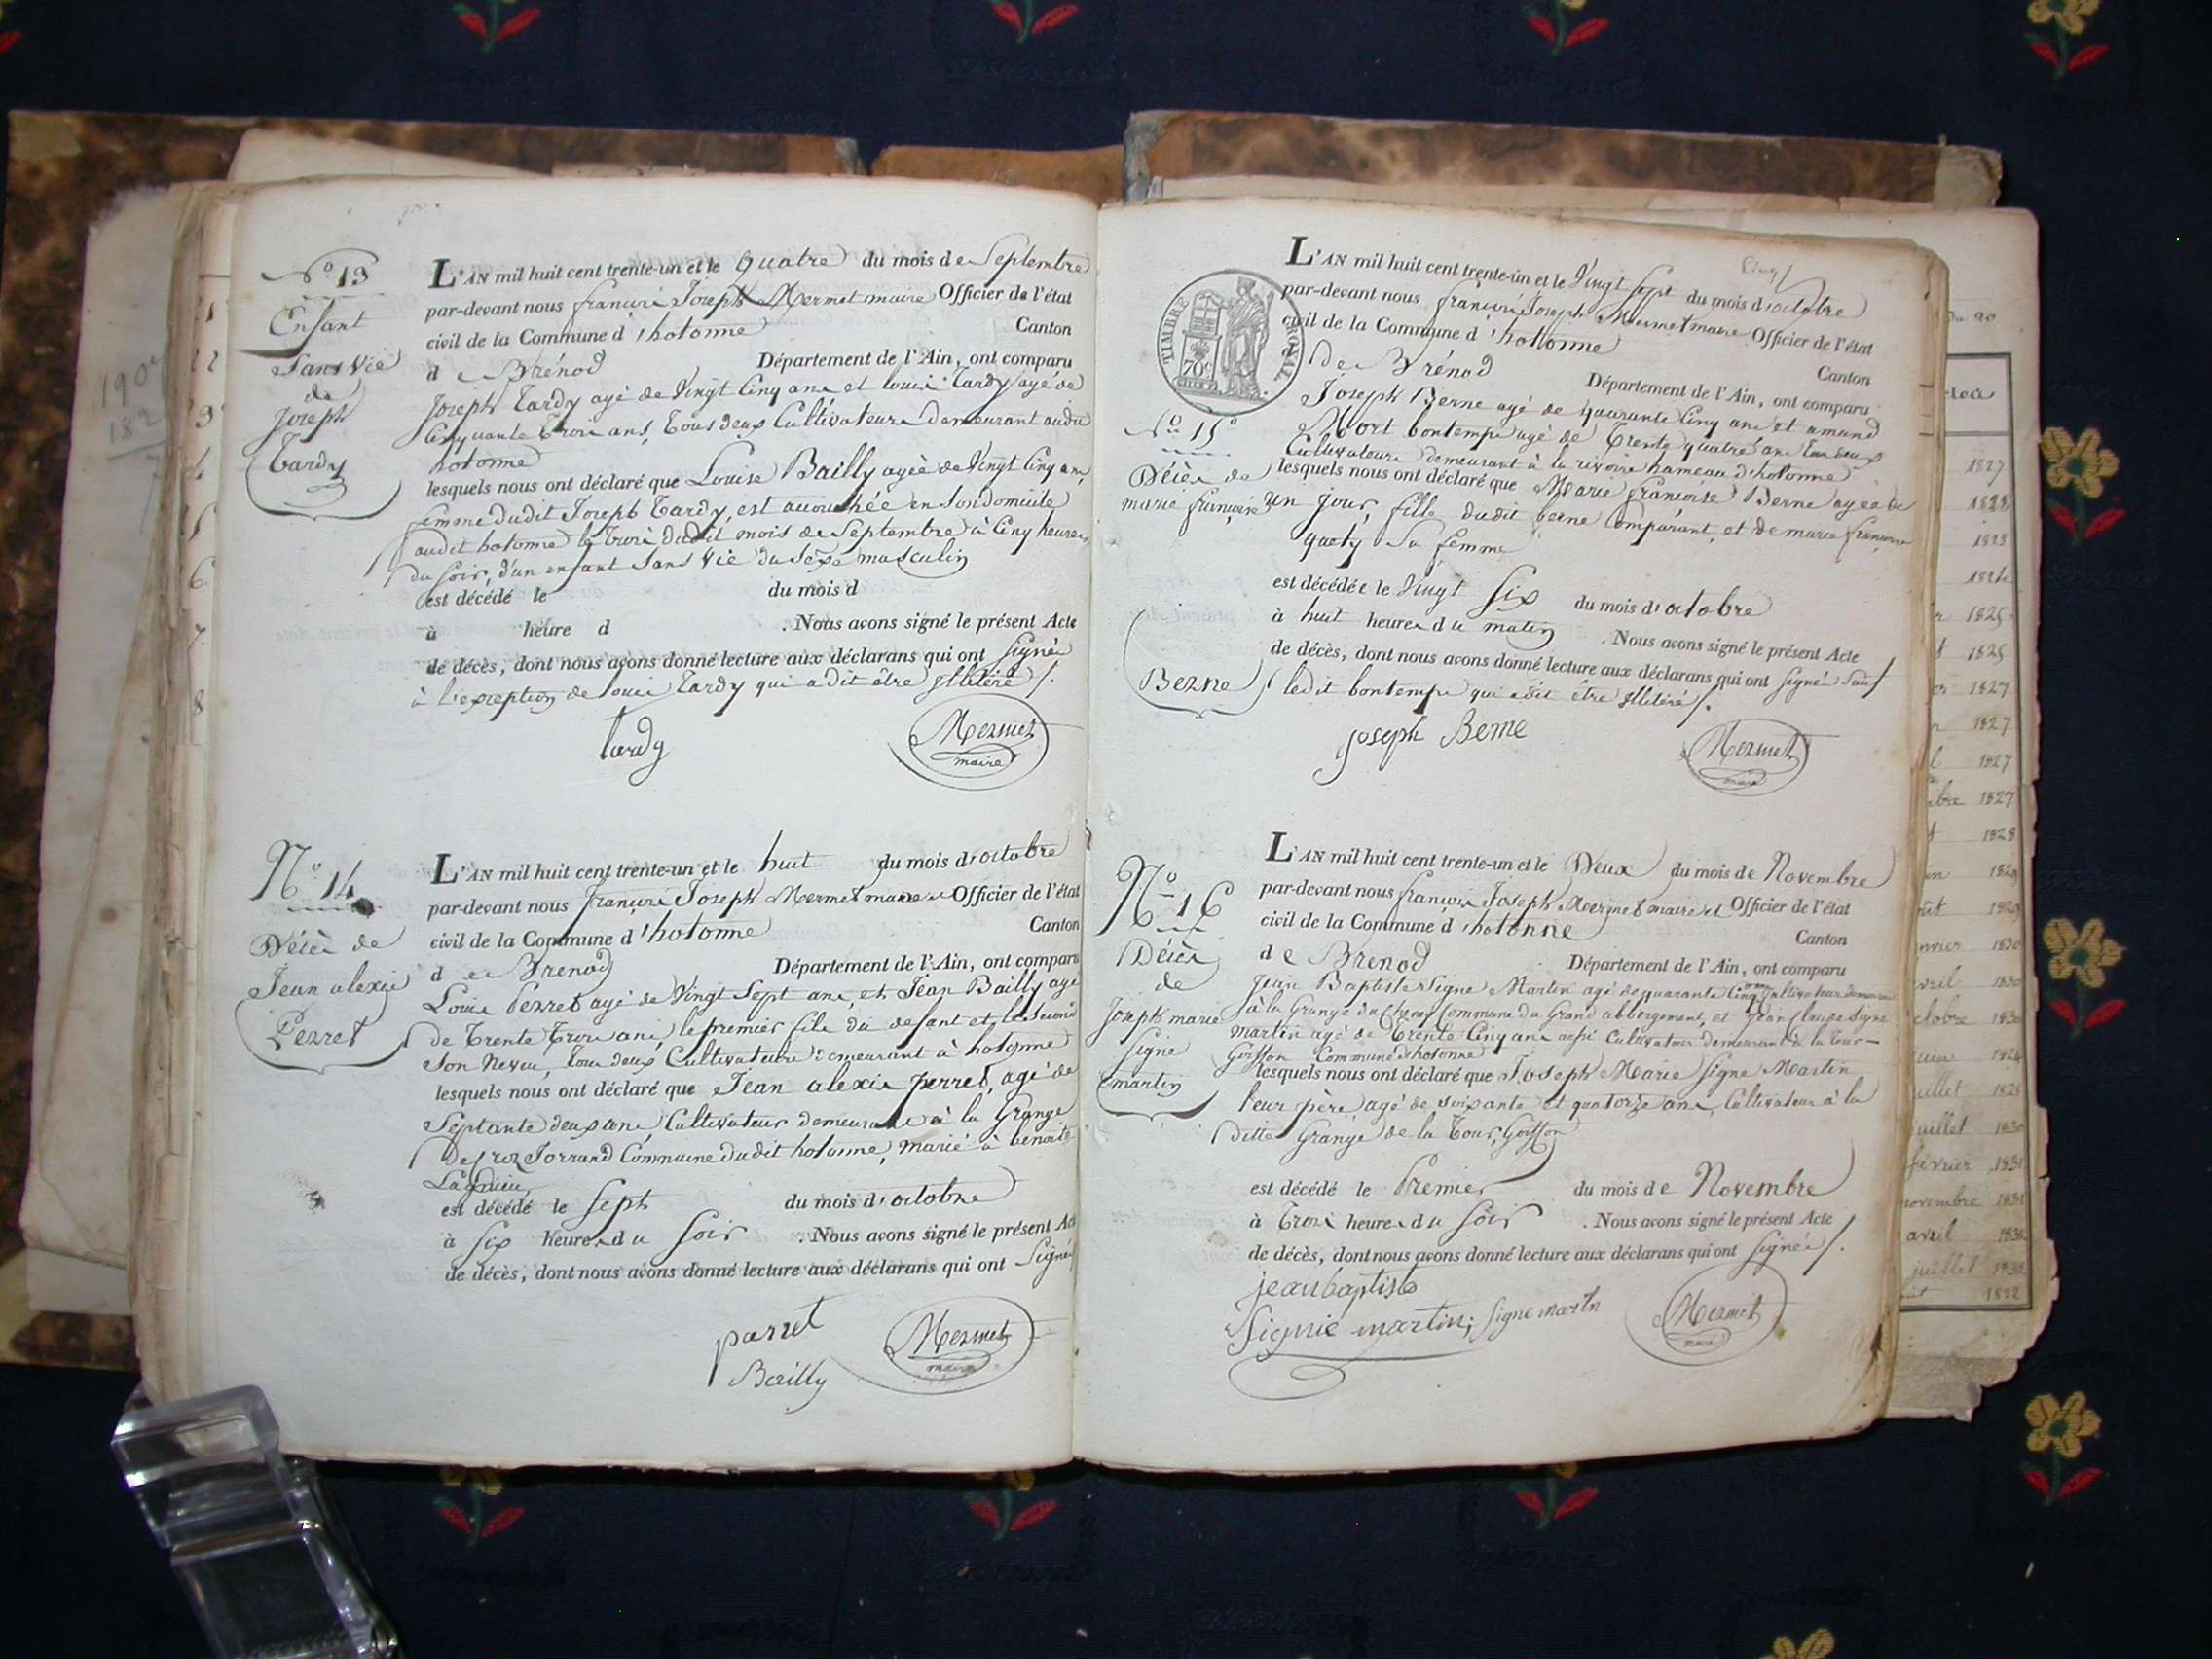 N.o 13
Enfant
Sans vie
de
Joseph
Tardy
L'AN mil huit cent trente-un et le quatre du mois de Septembre
par-devant nous françois Joseph Mermet maire Officier de l'état
civil de la Commune d'hotonne Canton
de Brénod Département de l'Ain, ont comparu
Joseph Tardy agé de Vingt Cinq ans et louis Tardy agé de
Cinquante trois ans, Tous deux Cultivateurs Demeurant audit
hotonne
lesquels nous ont déclaré que Louise Bailly agée de Vingt Cinq ans,
femme dudit Joseph Tardy, est accouchée en Son domicile
audit hotonne le trois dudit mois de Septembre à Cinq heures
du soir, d'un enfant Sans Vie du Séxe masculin
est décédé le du mois d
à heure d . Nous avons signé le présent Acte
de décès, dont nous avons donné lecture aux déclarans qui ont Signés
à l'exception de louis Tardy qui a dit être Illitéré /.
tardy
Mermet
maire
N.o 14
Décès de
Jean alexis
Perret
L'AN mil huit cent trente-un et le huit du mois d'octobre
par-devant nous françois Joseph Mermet maire Officier de l'état
civil de la Commune d'hotonne Canton
de Brenod Département de l'Ain, ont comparu
Louis Perret agé de Vingt Sept ans, et Jean Bailly agé
de Trente Trois ans, le premier fils du defant et le Second
Son Neveu, Tous deux Cultivateurs demeurant à hotonne
lesquels nous ont déclaré que Jean alexis perret, agé de
Septante deux ans, Cultivateur demeurant à la Grange
Jorrand Commune dudit hotonne, marié à benoite
Lagnieu,
est décédé le Sept du mois d'octobre
à Six heures du Soir . Nous avons signé le présent Acte
de décès, dont nous avons donné lecture aux déclarans qui ont Signés
parret
Bailly
Mermet
maire
Cinq
TIMBRE ROYAL
70c
L'AN mil huit cent trente-un et le Vingt Sept du mois d'octobre
par-devant nous françois Joseph Mermet maire Officier de l'état
civil de la Commune d'hotonne Canton
De Brénod Département de l'Ain, ont comparu
Joseph Berne agé de quarante Cinq ans et amand
Mort bontemps agé de Trente quatre ans tous deux
Cultivateurs demeurant à la rivoire hameau d'hotonne
N.o 15
Décès de
marie françoise
Berne
lesquels nous ont déclaré que Marie françoise Berne agée de
un jour, fille dudit berne Comparant, et de marie françoise
quety Sa femme
est décédée le Vingt Six du mois d'octobre
à huit heures du matin . Nous avons signé le présent Acte
de décès, dont nous avons donné lecture aux déclarans qui ont Signés Sauf
ledit bontemps qui a dit être Illitéré /.
joseph Berne
Mermet
maire
N.o 16
Décès
de
Joseph marie
Signe
martin
L'AN mil huit cent trente-un et le Deux du mois de Novembre
par-devant nous françois Joseph Mermet maire et Officier de l'état
civil de la Commune d'hotonne Canton
de Brenod Département de l'Ain, ont comparu
Jean Baptiste Signe Martin agé de quarante Cinq ans Cultivateur demeurant
à la Grange du Commune du Grand abbergement, et Jean Claude Signe
martin agé de Trente Cinq ans aussi Cultivateur demeurant à la Tour-
Goisson Commune d'hotonne
lesquels nous ont déclaré que Joseph Marie Signe Martin
leur père, agé de soixante et quatorze ans, Cultivateur à la
ditte Grange de la Tour, Goisson
est décédé le Premier du mois de Novembre
à Trois heures du Soir . Nous avons signé le présent Acte
de décès, dont nous avons donné lecture aux déclarans qui ont Signés /.
jean baptiste
Signie martin; Signe martin
Mermet
maire
1827
1828
1825
1825
1827
1827
1827
1827
1828
1829
1829
janvier 1830
avril 1830
octobre 1830
juillet 1830
février 1831
novembre 1831
avril
juillet